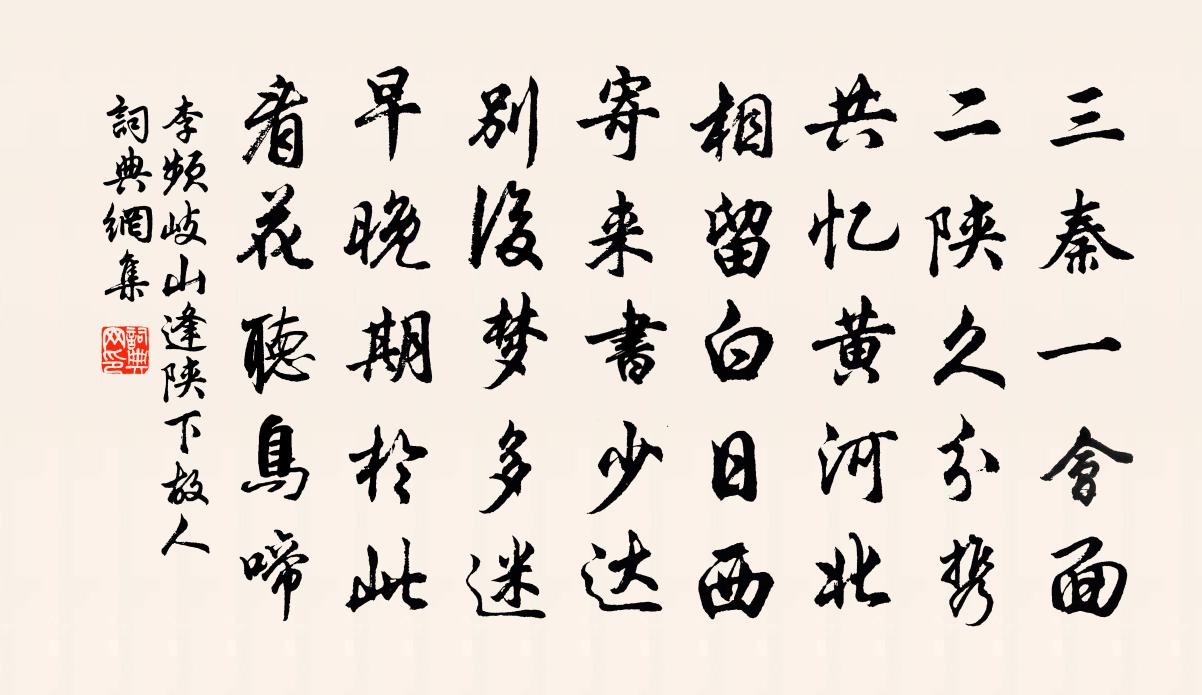 三秦一會面
二陕久分携
共忆黄河北
相留白日西
寄来書少达
别後梦多迷
早晚期於此
看花聴鳥啼
李频岐山逢陕下故人
詞典網集
詞典
网印